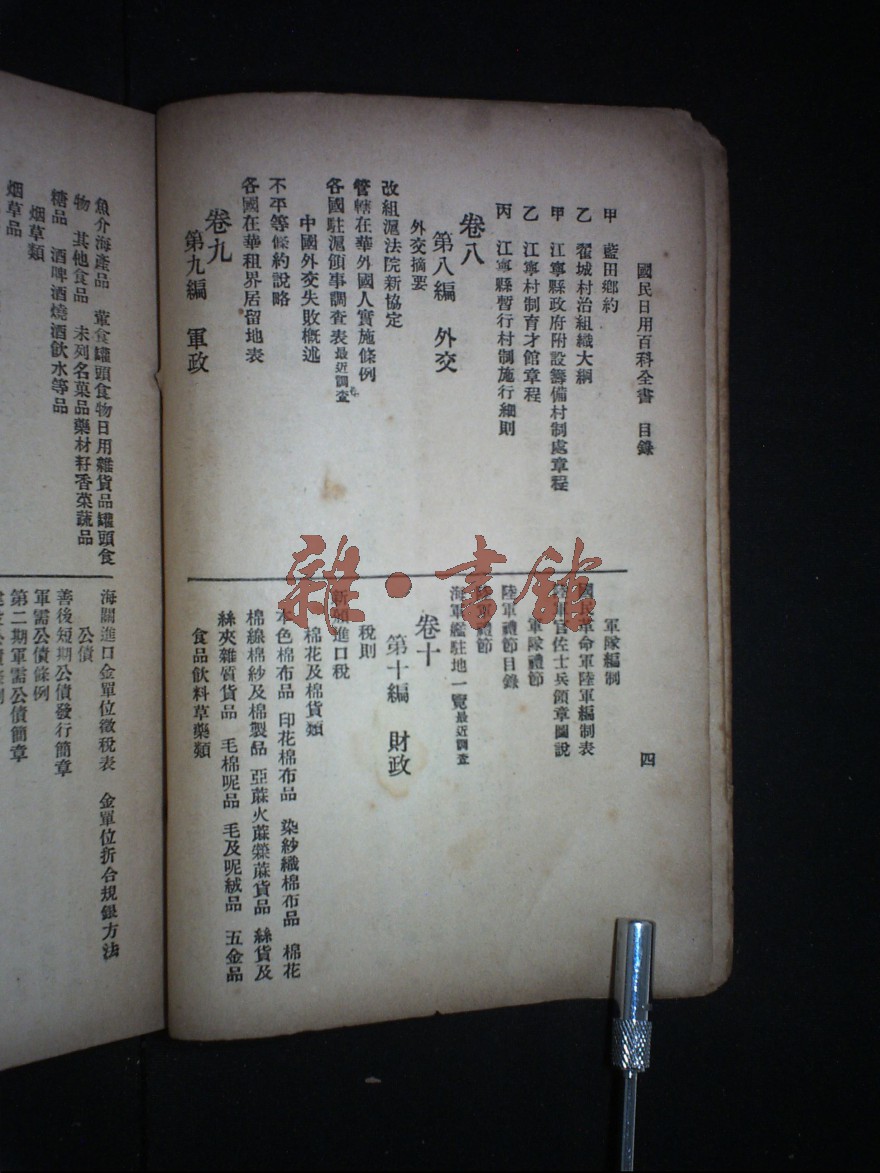 國民日用百科全書 目錄
四
甲 藍田鄉約
乙 翟城村治組織大綱
甲 江寧縣政府附設籌備村制處章程
乙 江寧村制育才館章程
丙 江寧縣暫行村制施行細則
卷八
第八編 外交
外交摘要
改組滬法院新協定
管轄在華外國人實施條例
各國駐滬領事調查表最近調查
中國外交失敗概述
不平等條約說略
各國在華租界居留地表
卷九
第九編 軍政
軍隊編制
國民革命軍陸軍編制表
陸軍官佐士兵領章圖說
軍隊禮節
陸軍禮節目錄
禮節
海軍艦駐地一覽最近調查
卷十
第十編 財政
稅則
新頒進口稅
棉花及棉貨類
本色棉布品 印花棉布品 染紗織棉布品 棉花
棉線棉紗及棉製品 亞蔴火蔴檾蔴貨品 絲貨及
絲夾雜質貨品 毛棉呢品 毛及呢絨品 五金品
食品飲料草藥類
魚介海產品 葷食罐頭食物日用雜貨品罐頭食
物 其他食品 未列名菓品藥材籽香菜蔬品
糖品 酒啤酒燒酒飲水等品
烟草類
烟草品
海關進口金單位徵稅表 金單位折合規銀方法
公債
善後短期公債發行簡章
軍需公債條例
第二期軍需公債簡章
雜·書館